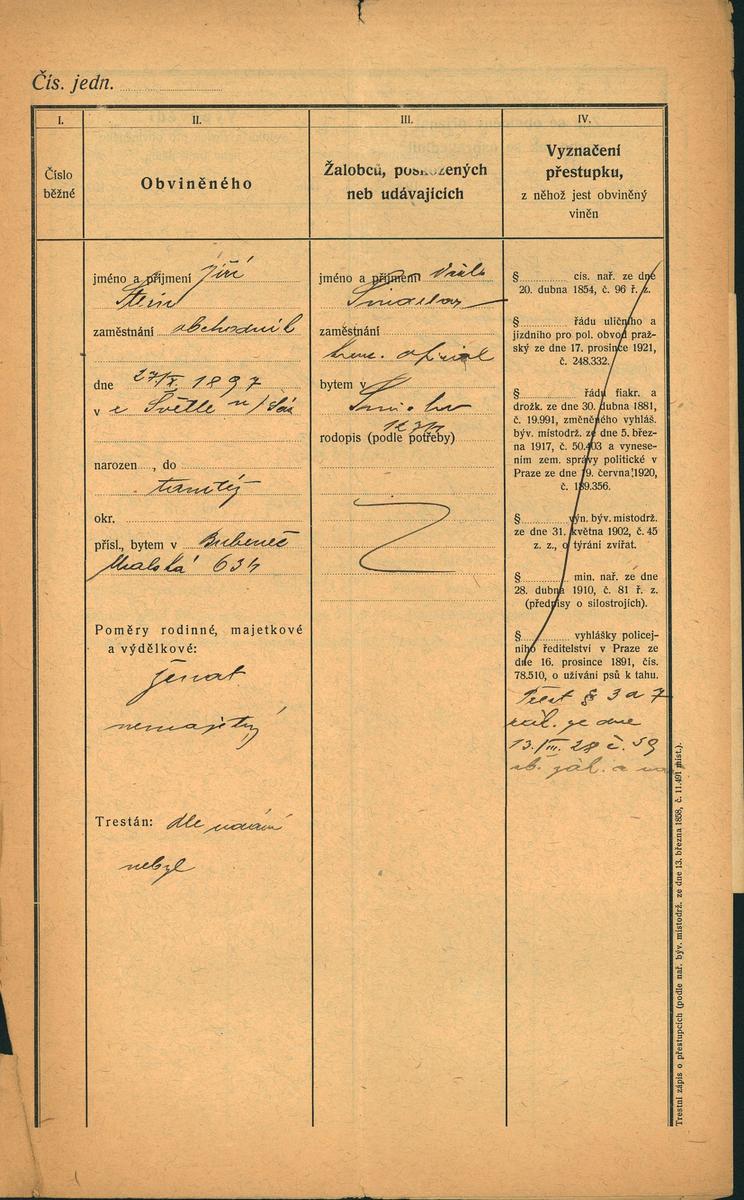 Čís. jedn.
I.
Číslo
běžné
II.
Obviněného
jméno a příjmení Jiří
Stein
zaměstnání obchodník
dne 27/X. 1897
v e Světlé n/Sáz
narozen , do
tamtéž
okr.
přísl., bytem v Bubeneč
634
Poměry rodinné, majetkové
a výdělkové:
ženat
nemajetný
Trestán: dle udání
nebyl
III.
Žalobců, poškozených
neb udávajících
jméno a příjmení
zaměstnání
bytem v
Smíchov
rodopis (podle potřeby)
IV.
Vyznačení
přestupku,
z něhož jest obviněný
viněn
§ cís. nař. ze dne
20. dubna 1854, č. 96 ř. z.
§ řádu uličního a
jízdního pro pol. obvod praž-
ský ze dne 17. prosince 1921,
č. 248.332.
§ řádu fiakr. a
drožk. ze dne 30. dubna 1881,
č. 19.991, změněného vyhláš.
býv. místodrž. ze dne 5. břez-
na 1917, č. 50.403 a vynese-
ním zem. správy politické v
Praze ze dne 19. června 1920,
č. 189.356.
§ výn. býv. místodrž.
ze dne 31. května 1902, č. 45
z. z., o týrání zvířat.
§ min. nař. ze dne
28. dubna 1910, č. 81 ř. z.
(předpisy o silostrojích).
§ vyhlášky policej-
ního ředitelství v Praze ze
dne 16. prosince 1891, čís.
78.510, o užívání psů k tahu.
Přest § 3 a 7
ze dne
13./III. 28 č. 59
sb. zák. a nař
Trestní zápis o přestupcích (podle nař. býv. místodrž. ze dne 13. března 1858, č. 11.491 míst.).